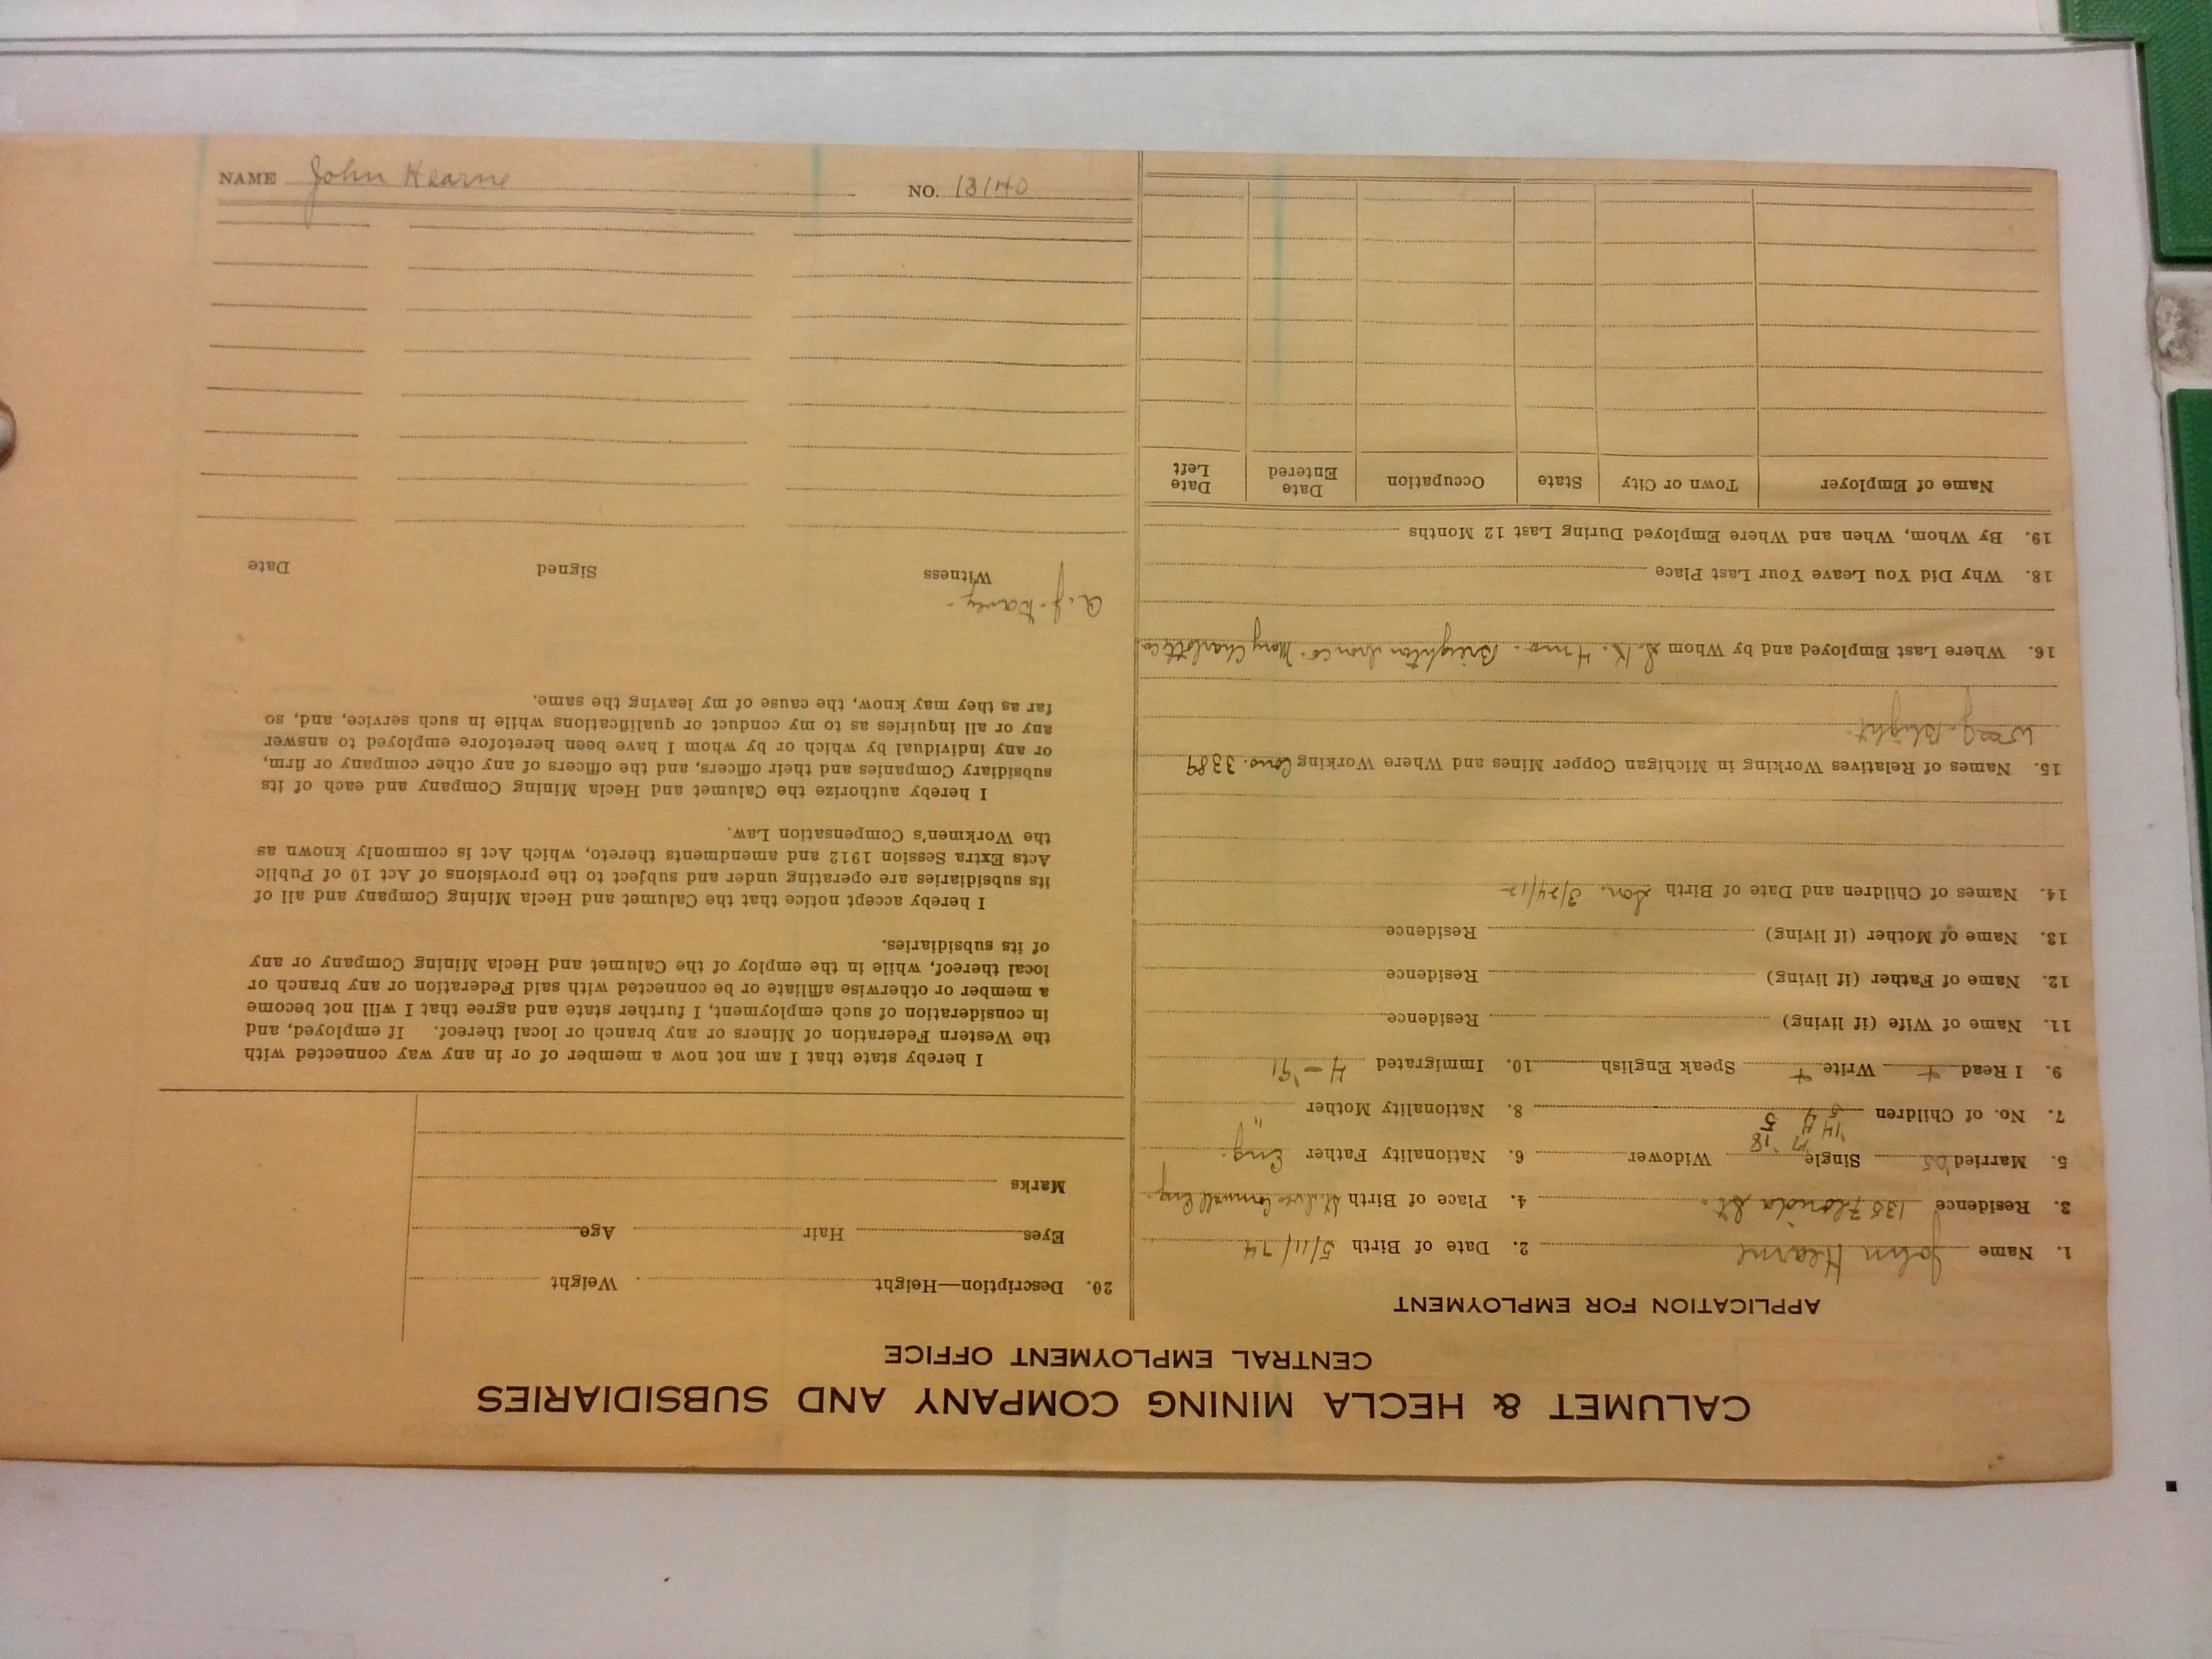 CALUMET & HECLA MINING COMPANY AND SUBSIDIARIES
CENTRAL EMPLOYMENT OFFICE
APPLICATION FOR EMPLOYMENT
1. Name John Hearne 2. Date of Birth 5/11/74
3. Residence 135 Florida St. 4. Place of Birth Cornwall Eng.
5. Married '05 Single Widower 6. Nationality Father Eng.
'14 '17 '18
7. No. of Children 5 4 5 8. Nationality Mother "
9. I Read + Write + Speak English 10. Immigrated 4-'91
11. Name of Wife (if living) Residence
12. Name of Father (if living) Residence
13. Name of Mother (if living) Residence
14. Names of Children and Date of Birth Son. 3/24/12
15. Names of Relatives Working in Michigan Copper Mines and Where Working Cons. 3389
Wm J. Blight.
16. Where Last Employed and by Whom 4 mo. Brighton Iron Co. Mary Charlotte Co
18. Why Did You Leave Your Last Place
19. By Whom, When and Where Employed During Last 12 Months
Name of Employer Town or City State Occupation Date Entered Date Left
20. Description—Height Weight
Eyes Hair Age
Marks
I hereby state that I am not now a member of or in any way connected with
the Western Federation of Miners or any branch or local thereof. If employed, and
in consideration of such employment, I further state and agree that I will not become
a member or otherwise affiliate or be connected with said Federation or any branch or
local thereof, while in the employ of the Calumet and Hecla Mining Company or any
of its subsidiaries.
I hereby accept notice that the Calumet and Hecla Mining Company and all of
its subsidiaries are operating under and subject to the provisions of Act 10 of Public
Acts Extra Session 1912 and amendments thereto, which Act is commonly known as
the Workmen's Compensation Law.
I hereby authorize the Calumet and Hecla Mining Company and each of its
subsidiary Companies and their officers, and the officers of any other company or firm,
or any individual by which or by whom I have been heretofore employed to answer
any or all inquiries as to my conduct or qualifications while in such service, and, so
far as they may know, the cause of my leaving the same.
a. J. Davey.
Witness Signed Date
NAME John Hearne NO. 13140